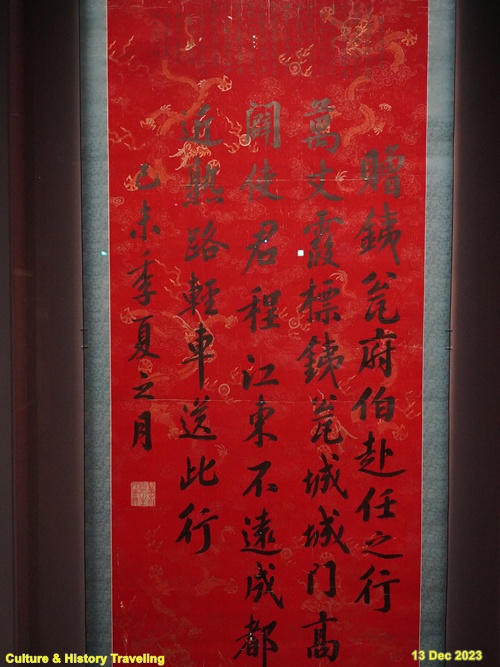 贈銕瓮府伯赴任之行
萬丈霞標銕瓮城城门高
闢使君程江東不遠成都
近熟路輕車送此行
己未季夏之月
Culture & History Traveling
13 Dec 2023